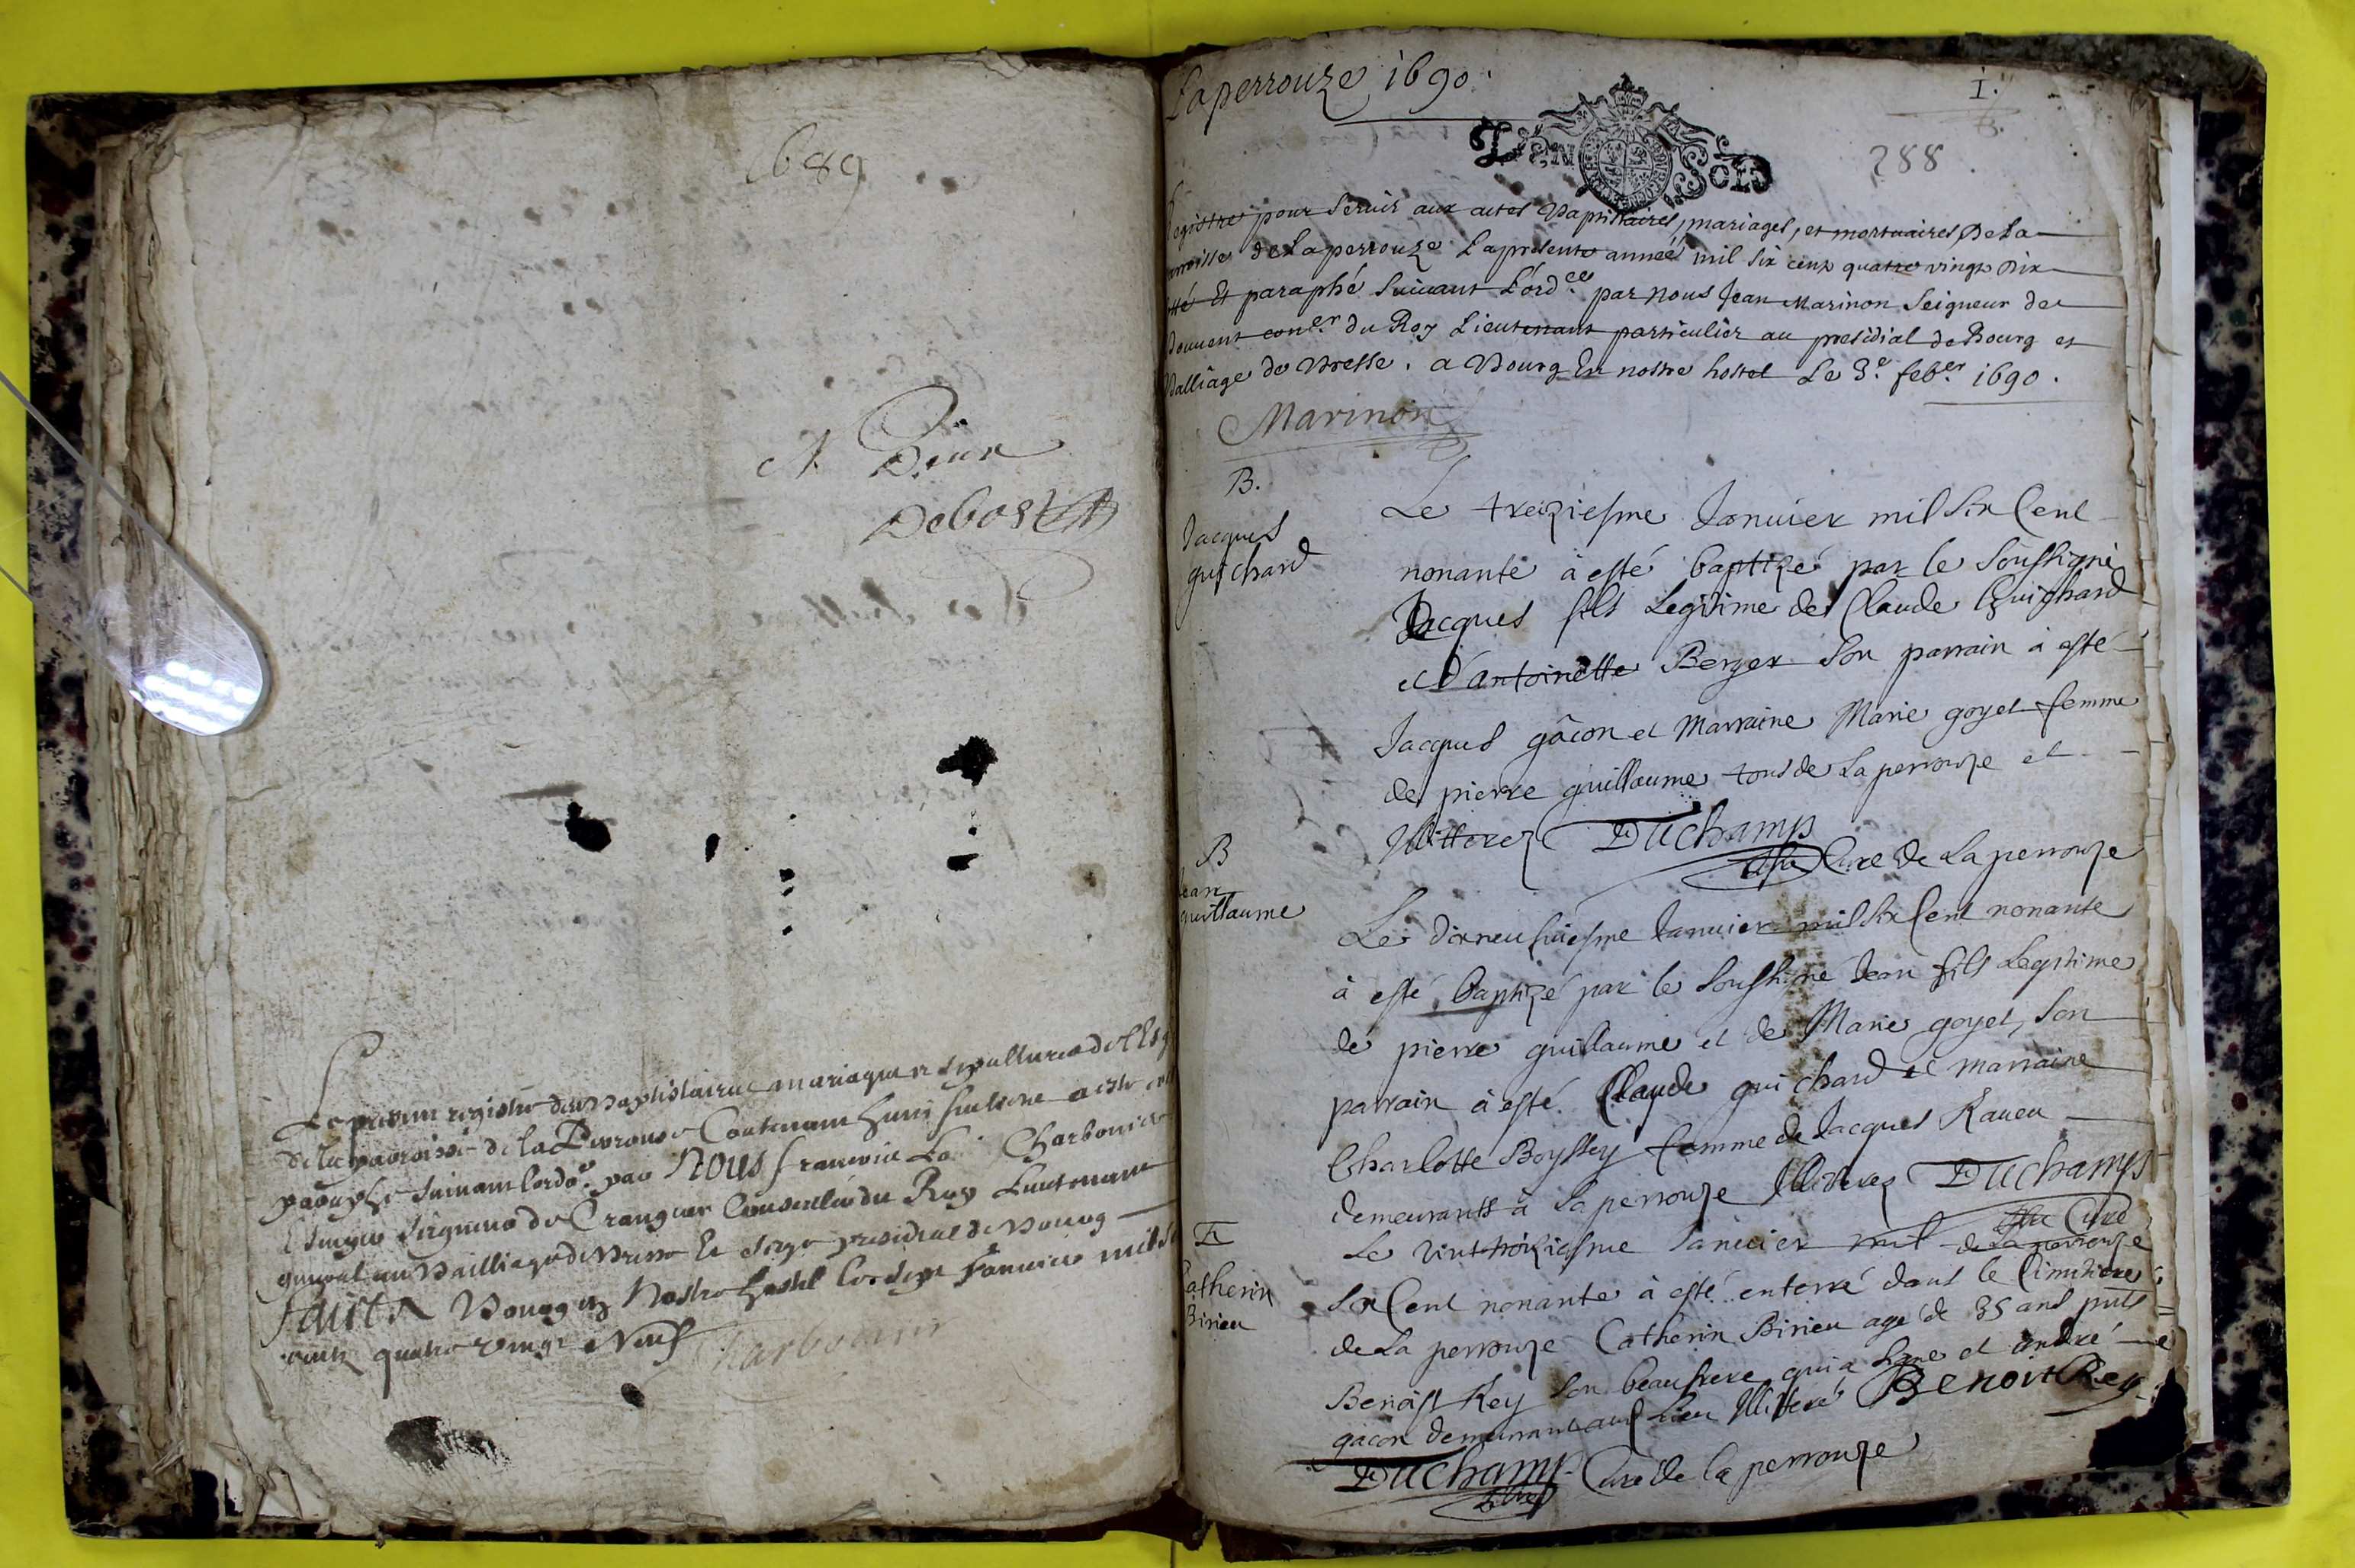 1689
A. Deux
Debost
Le present registre des baptistaires mariages et sepultures de l'Esg
de la parroisse de la Perrouse Contenant huit feulliets a esté
paraphé suivant l'ordce par Nous francois Charbonier
Seigneur de Crangeac Conseiller du Roy Lieutenant
general au Bailliage de Bresse Et siege presidial de Bourg
fait A Bourg en Nostre hostel Janvier mil si
cents quatre vingt Neuf Charbonnier
Laperrouze 1690.
1.
DEN SOLS
288
Registre pour servir aux actes Baptistaires, mariages, et mortuaires De La
parroisse de Laperrouze La presente année mil six cent quatre vingts Dix
cotté Et paraphé suivant L'ordce par nous Jean Marinon Seigneur de
conser du Roy Lieutenant particulier au presidial de Bourg et
Balliage de Bresse. a Bourg En nostre hostel Le 3e feber 1690.
Marinon
B.
Jacques
guichard
Le treiziesme Janvier mil six Cent
nonante à esté baptizé par le soussigné
Jacques fils Legitime de Claude Guichard
et D'antoinette Berger son parrain à esté
Jacques gâcon et Marraine Marie goyet femme
de pierre guillaume tous de La perrouze et
Illitterez Duchamp
Curé de La perrouze
B
Jean
guillaume
Le dixneufviesme Janvier mil six Cent nonante
à esté baptizé par le soussigné Jean fils Legitime
de pierre guillaume et de Marie goyet, son
parrain à esté Claude guichard et marraine
Charlotte Boyssey femme de Jacques Raveu
demeurants à La perrouze Illiterez Duchamp
Curé
de La perrouze
E
Catherin
Birieu
Le vint troiziesme Janvier mil
six Cent nonante à esté enterré dans le Cimitiere
de La perrouze Catherin Birieu agé de 35 ans puts
Benoist Rey son beaufrere qui a signe et andré
gâcon demeurant audt lieu Illiteré Benoit Rey
Duchamp Curé de la perrouze